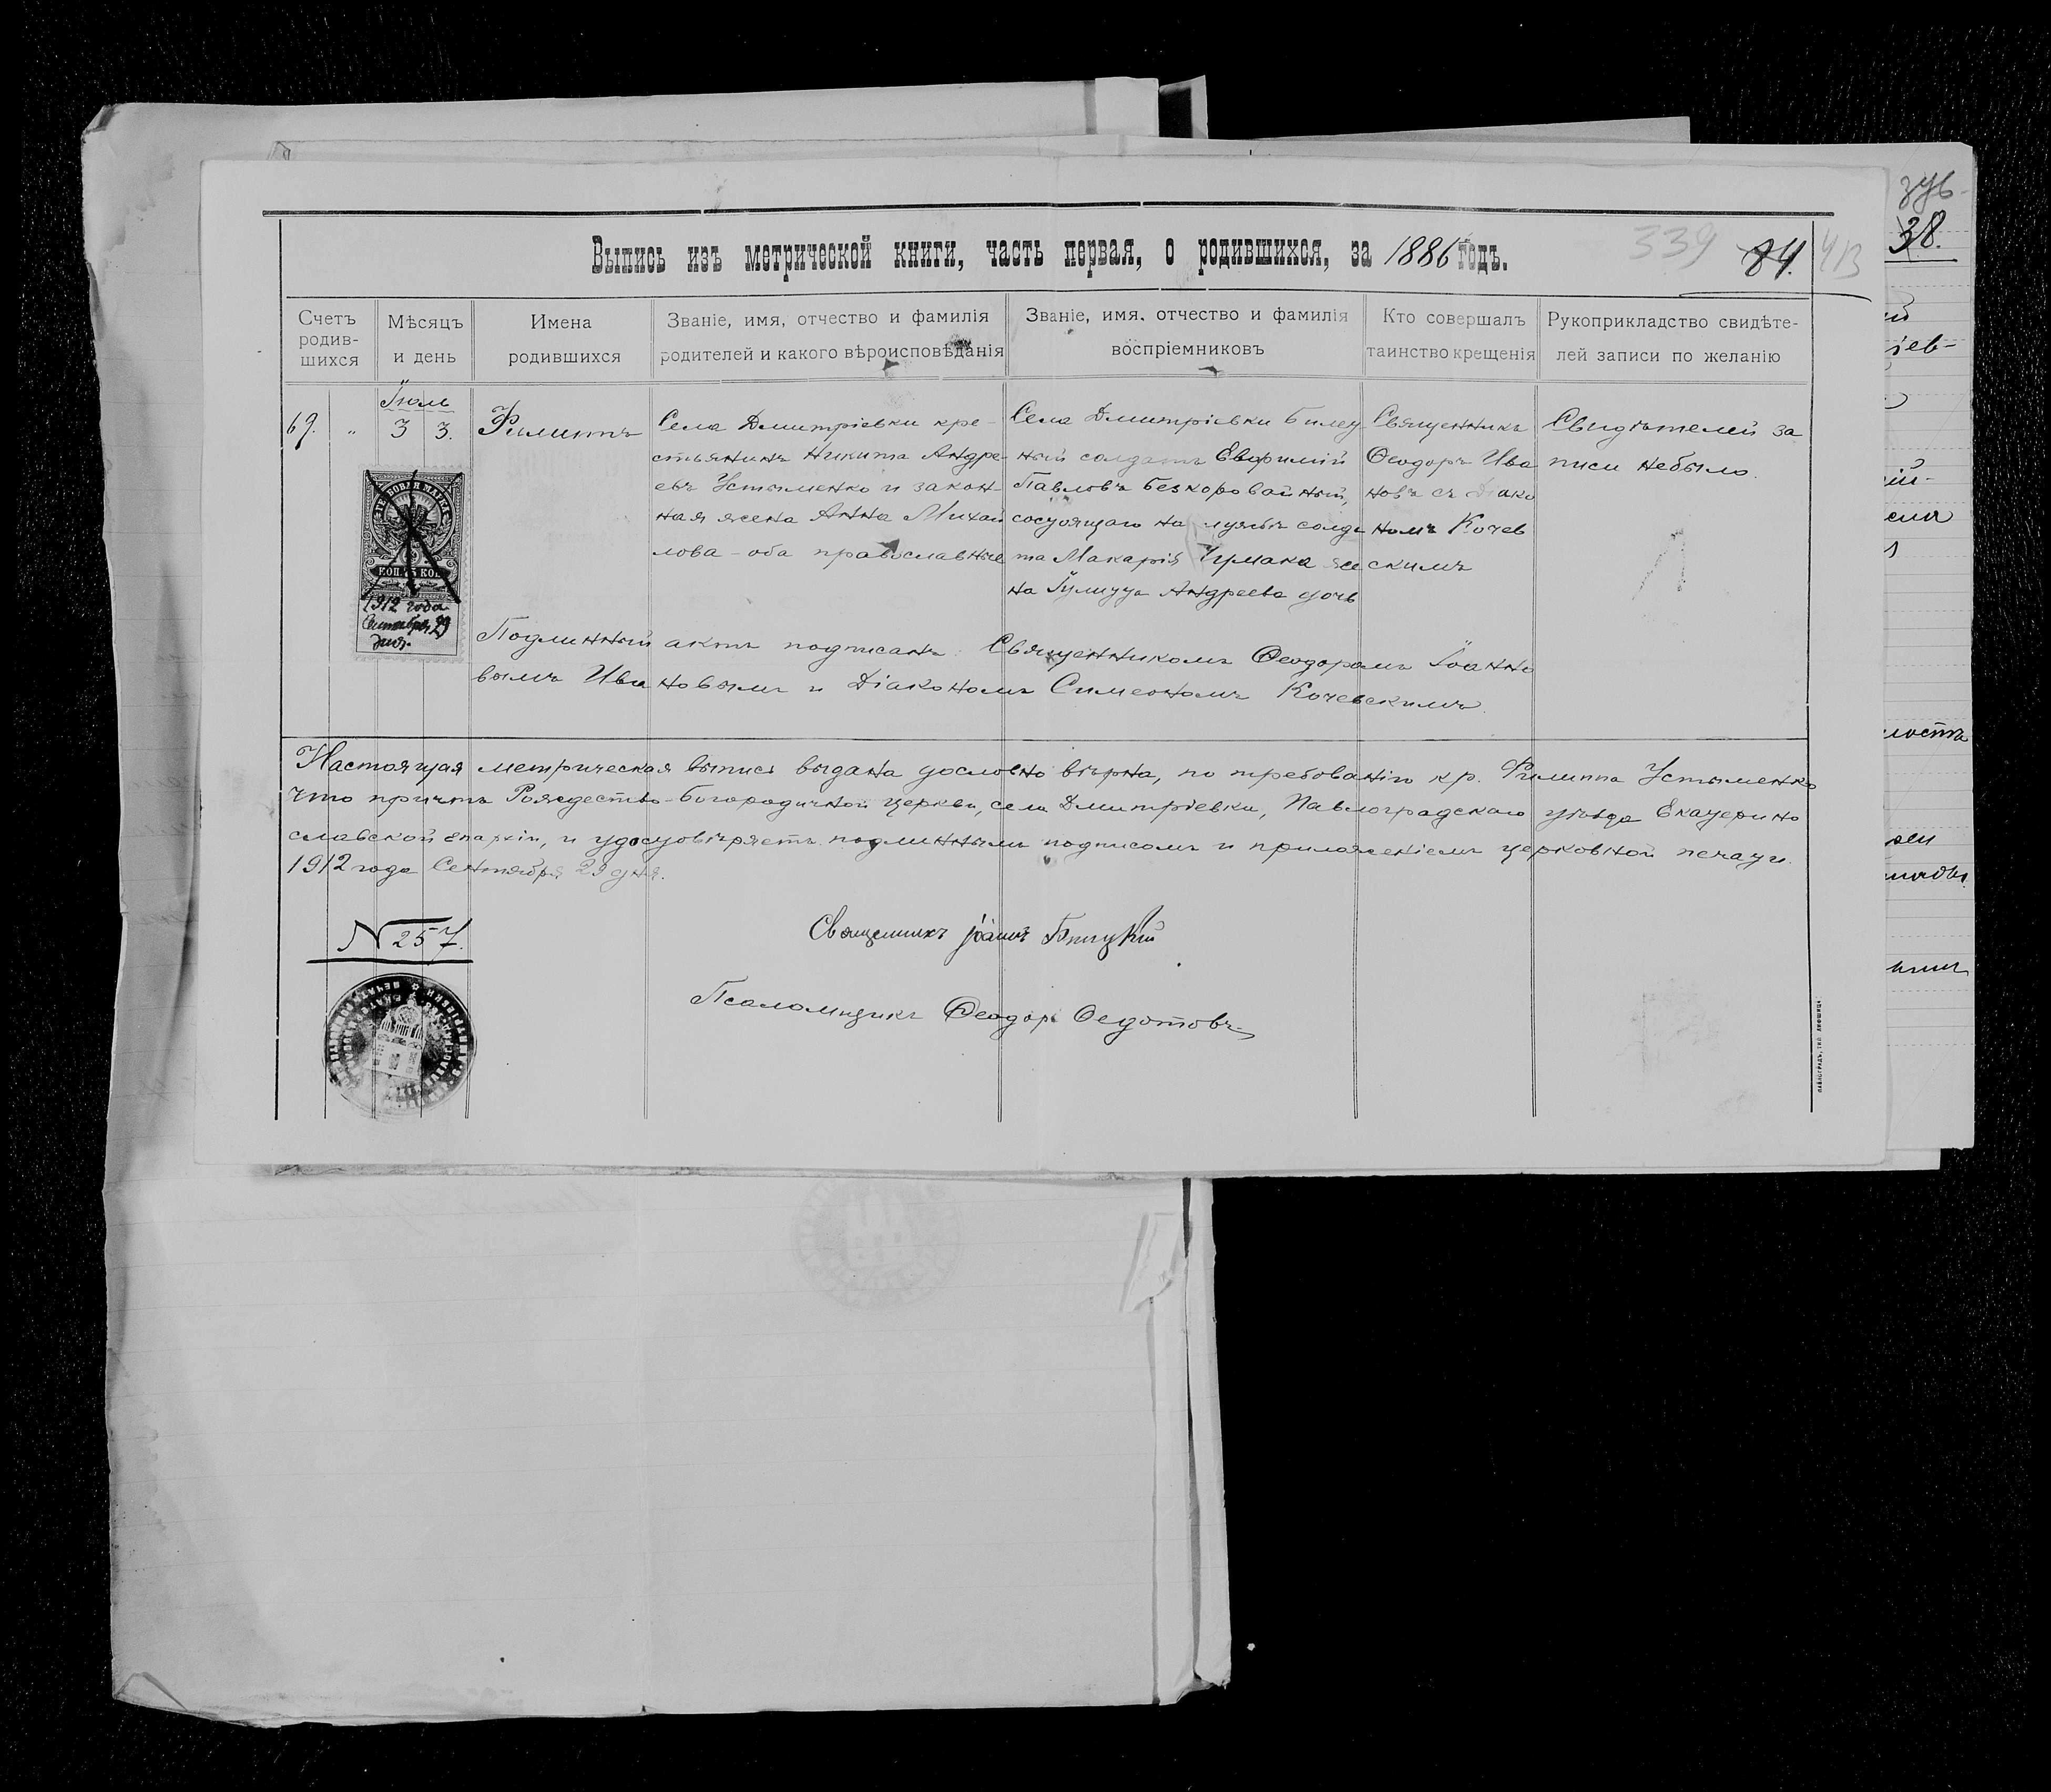 Выпись изъ метрической книги, часть первая, о родившихся, за 1886 годъ.
339 84. 413
38.
Счетъ родив-шихся
Мѣсяцъ и день
Имена родившихся
Званіе, имя, отчество и фамилія родителей и какого вѣроисповѣданія
Званіе, имя, отчество и фамилія воспріемниковъ
Кто совершалъ таинство крещенія
Рукоприкладство свидѣте-лей записи по желанію
69. "
Іюль
3 3.
Филиппъ
Села Дмитріевки кре-
стьянинъ Никита Андре-
евъ Устименко и закон-
ная жена Анна Михай
лова - оба православные
Села Дмитріевки билет
ный солдатъ Евфимій
Павловъ Безкоровайный,
состоящаго на службѣ солда
та Макарія Чумака же
на Гулитта Андреева дочь
Священникъ
Ѳеодоръ Ива
новъ съ Діако
номъ Кочев
скимъ
Свидѣтелей за
писи небыло.
КОП. 75 КОП.
1912 года
Сентября 29
дня.
Подлинный актъ подписанъ: Священникомъ Ѳеодоромъ Іоанно
вымъ Ивановымъ и Діакономъ Симеономъ Кочевскимъ.
Настоящая метрическая выпись выдана дословно вѣрна, по требованію кр. Филиппа Устименко
что причтъ Рождество-Богородичной церкви, села Дмитріевки, Павлоградскаго уѣзда Екатерино
славской епархіи, и удостовѣряетъ подлиннымъ подписомъ и приложеніемъ церковной печати.
1912 года Сентября 29 дня.
N 257.
Священникъ Іоаннъ
Псаломщикъ Ѳеодоръ Ѳедотовъ